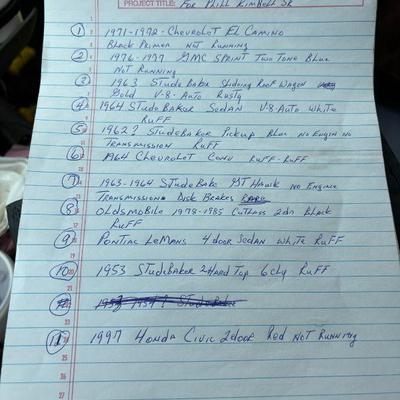 PROJECT TITLE: For Phill Kimball Sr
① 1971-1972 - Chevrolet El Camino
Black Primer Not Running
② 1976-1977 GMC Sprint Two Tone Blue
Not Running
③ 1963 Studebaker Slideing Roof Wagon
Gold V-8-Auto Rusty
④ 1964 Studebaker Sedan V-8-Auto White
Ruff
⑤ 1962? Studebaker Pickup Blue No Engin No
Transmission Ruff
⑥ 1964 Chevrolet Conv Ruff-Ruff
⑦ 1963-1964 Studebake GT Hawk No Engine
Transmission Disk Brakes
⑧ Oldsmobile 1978-1985 Cutlass 2dr Black
Ruff
⑨ Pontiac LeMans 4 door Sedan White Ruff
⑩ 1953 Studebaker 2 Hard Top 6 cly Ruff
⑪ 1997 Honda Civic 2 door Red Not Running